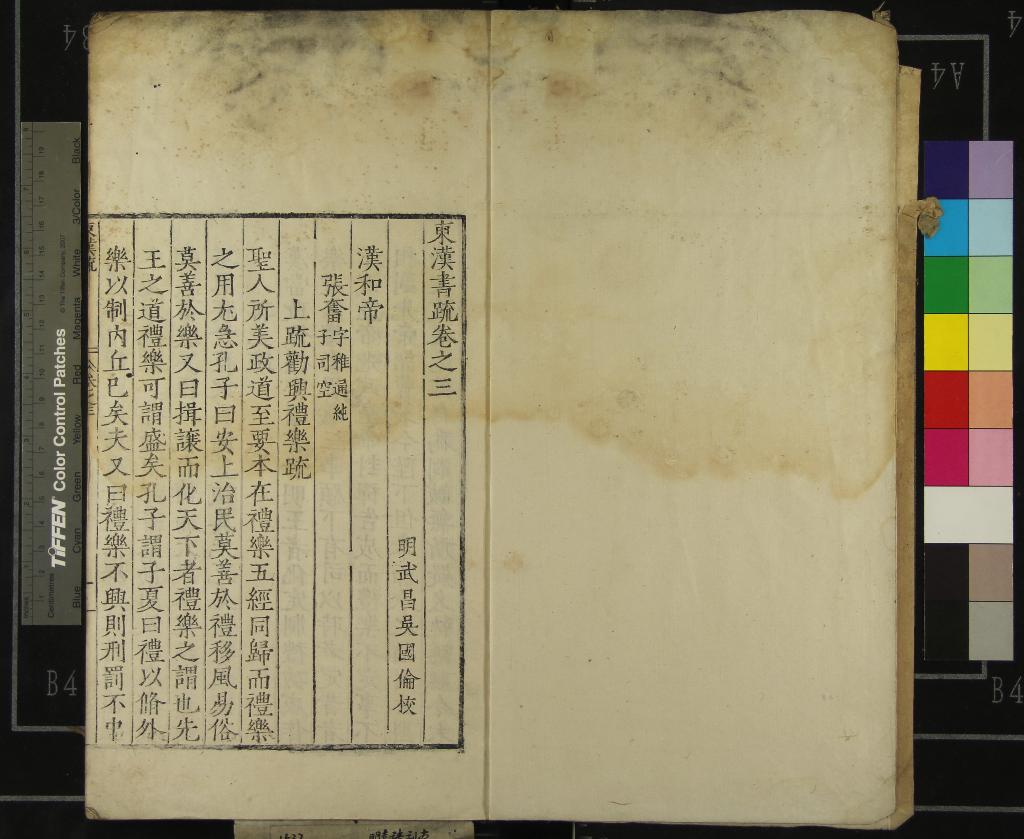 東漢書疏卷之三
明武昌吳國倫校
漢和帝
張奮字稚通純
子司空
上疏勸興禮樂疏
聖人所美政道至要本在禮樂五經同歸而禮樂
之用尤急孔子曰安上治民莫善於禮移風易俗
莫善於樂又曰揖讓而化天下者禮樂之謂也先
王之道禮樂可謂盛矣孔子謂子夏曰禮以脩外
樂以制內丘已矣夫又曰禮樂不興則刑罰不中
TIFFEN Color Control Patches
© The Tiffen Company, 2007
Centimetres
Blue
Cyan
Green
Yellow
Red
Magenta
White
3/Color
Black
A4
B4
B4